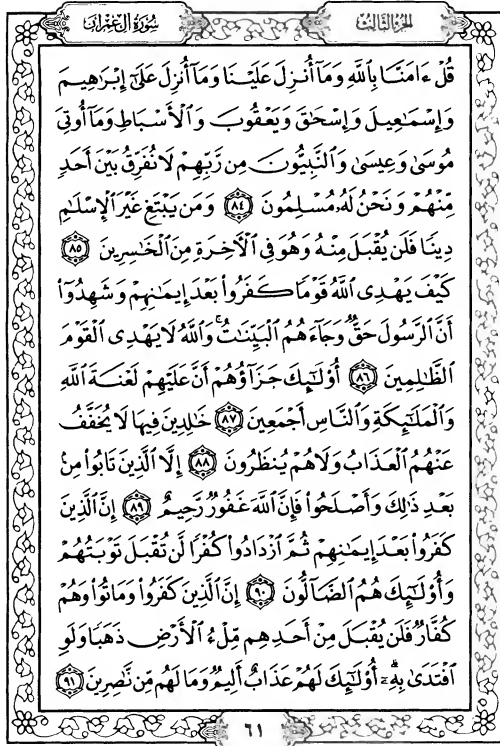 سُورَةُ آلِ عِمْرَان
الجُزْءُ الثَّالِثُ
قُلْ ءَامَنَّا بِٱللَّهِ وَمَآ أُنزِلَ عَلَيْنَا وَمَآ أُنزِلَ عَلَىٰٓ إِبْرَٰهِيمَ
وَإِسْمَٰعِيلَ وَإِسْحَٰقَ وَيَعْقُوبَ وَٱلْأَسْبَاطِ وَمَآ أُوتِىَ
مُوسَىٰ وَعِيسَىٰ وَٱلنَّبِيُّونَ مِن رَّبِّهِمْ لَا نُفَرِّقُ بَيْنَ أَحَدٍ
مِّنْهُمْ وَنَحْنُ لَهُۥ مُسْلِمُونَ ٨٤ وَمَن يَبْتَغِ غَيْرَ ٱلْإِسْلَٰمِ
دِينًا فَلَن يُقْبَلَ مِنْهُ وَهُوَ فِى ٱلْأَخِرَةِ مِنَ ٱلْخَٰسِرِينَ ٨٥
كَيْفَ يَهْدِى ٱللَّهُ قَوْمًا كَفَرُوا۟ بَعْدَ إِيمَٰنِهِمْ وَشَهِدُوٓا۟
أَنَّ ٱلرَّسُولَ حَقٌّ وَجَآءَهُمُ ٱلْبَيِّنَٰتُ ۚ وَٱللَّهُ لَا يَهْدِى ٱلْقَوْمَ
ٱلظَّٰلِمِينَ ٨٦ أُو۟لَٰٓئِكَ جَزَآؤُهُمْ أَنَّ عَلَيْهِمْ لَعْنَةَ ٱللَّهِ
وَٱلْمَلَٰٓئِكَةِ وَٱلنَّاسِ أَجْمَعِينَ ٨٧ خَٰلِدِينَ فِيهَا لَا يُخَفَّفُ
عَنْهُمُ ٱلْعَذَابُ وَلَا هُمْ يُنظَرُونَ ٨٨ إِلَّا ٱلَّذِينَ تَابُوا۟ مِنۢ
بَعْدِ ذَٰلِكَ وَأَصْلَحُوا۟ فَإِنَّ ٱللَّهَ غَفُورٌ رَّحِيمٌ ٨٩ إِنَّ ٱلَّذِينَ
كَفَرُوا۟ بَعْدَ إِيمَٰنِهِمْ ثُمَّ ٱزْدَادُوا۟ كُفْرًا لَّن تُقْبَلَ تَوْبَتُهُمْ
وَأُو۟لَٰٓئِكَ هُمُ ٱلضَّآلُّونَ ٩٠ إِنَّ ٱلَّذِينَ كَفَرُوا۟ وَمَاتُوا۟ وَهُمْ
كُفَّارٌ فَلَن يُقْبَلَ مِنْ أَحَدِهِم مِّلْءُ ٱلْأَرْضِ ذَهَبًا وَلَوِ
ٱفْتَدَىٰ بِهِۦٓ ۗ أُو۟لَٰٓئِكَ لَهُمْ عَذَابٌ أَلِيمٌ وَمَا لَهُم مِّن نَّٰصِرِينَ ٩١
٦١